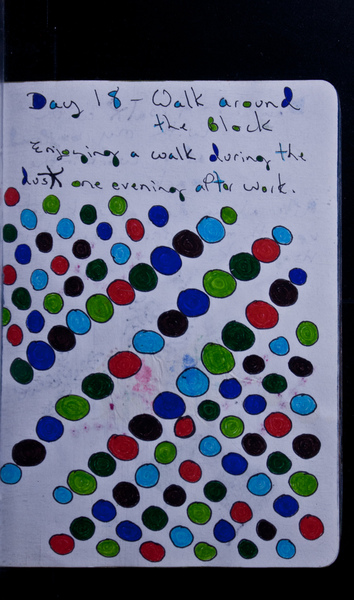 Day 18 - Walk around
the block
Enjoying a walk during the
dusk one evening after work.